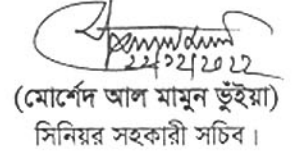 ২২/১২/২০২২
(মোর্শেদ আল মামুন ভুঁইয়া)
সিনিয়র সহকারী সচিব।